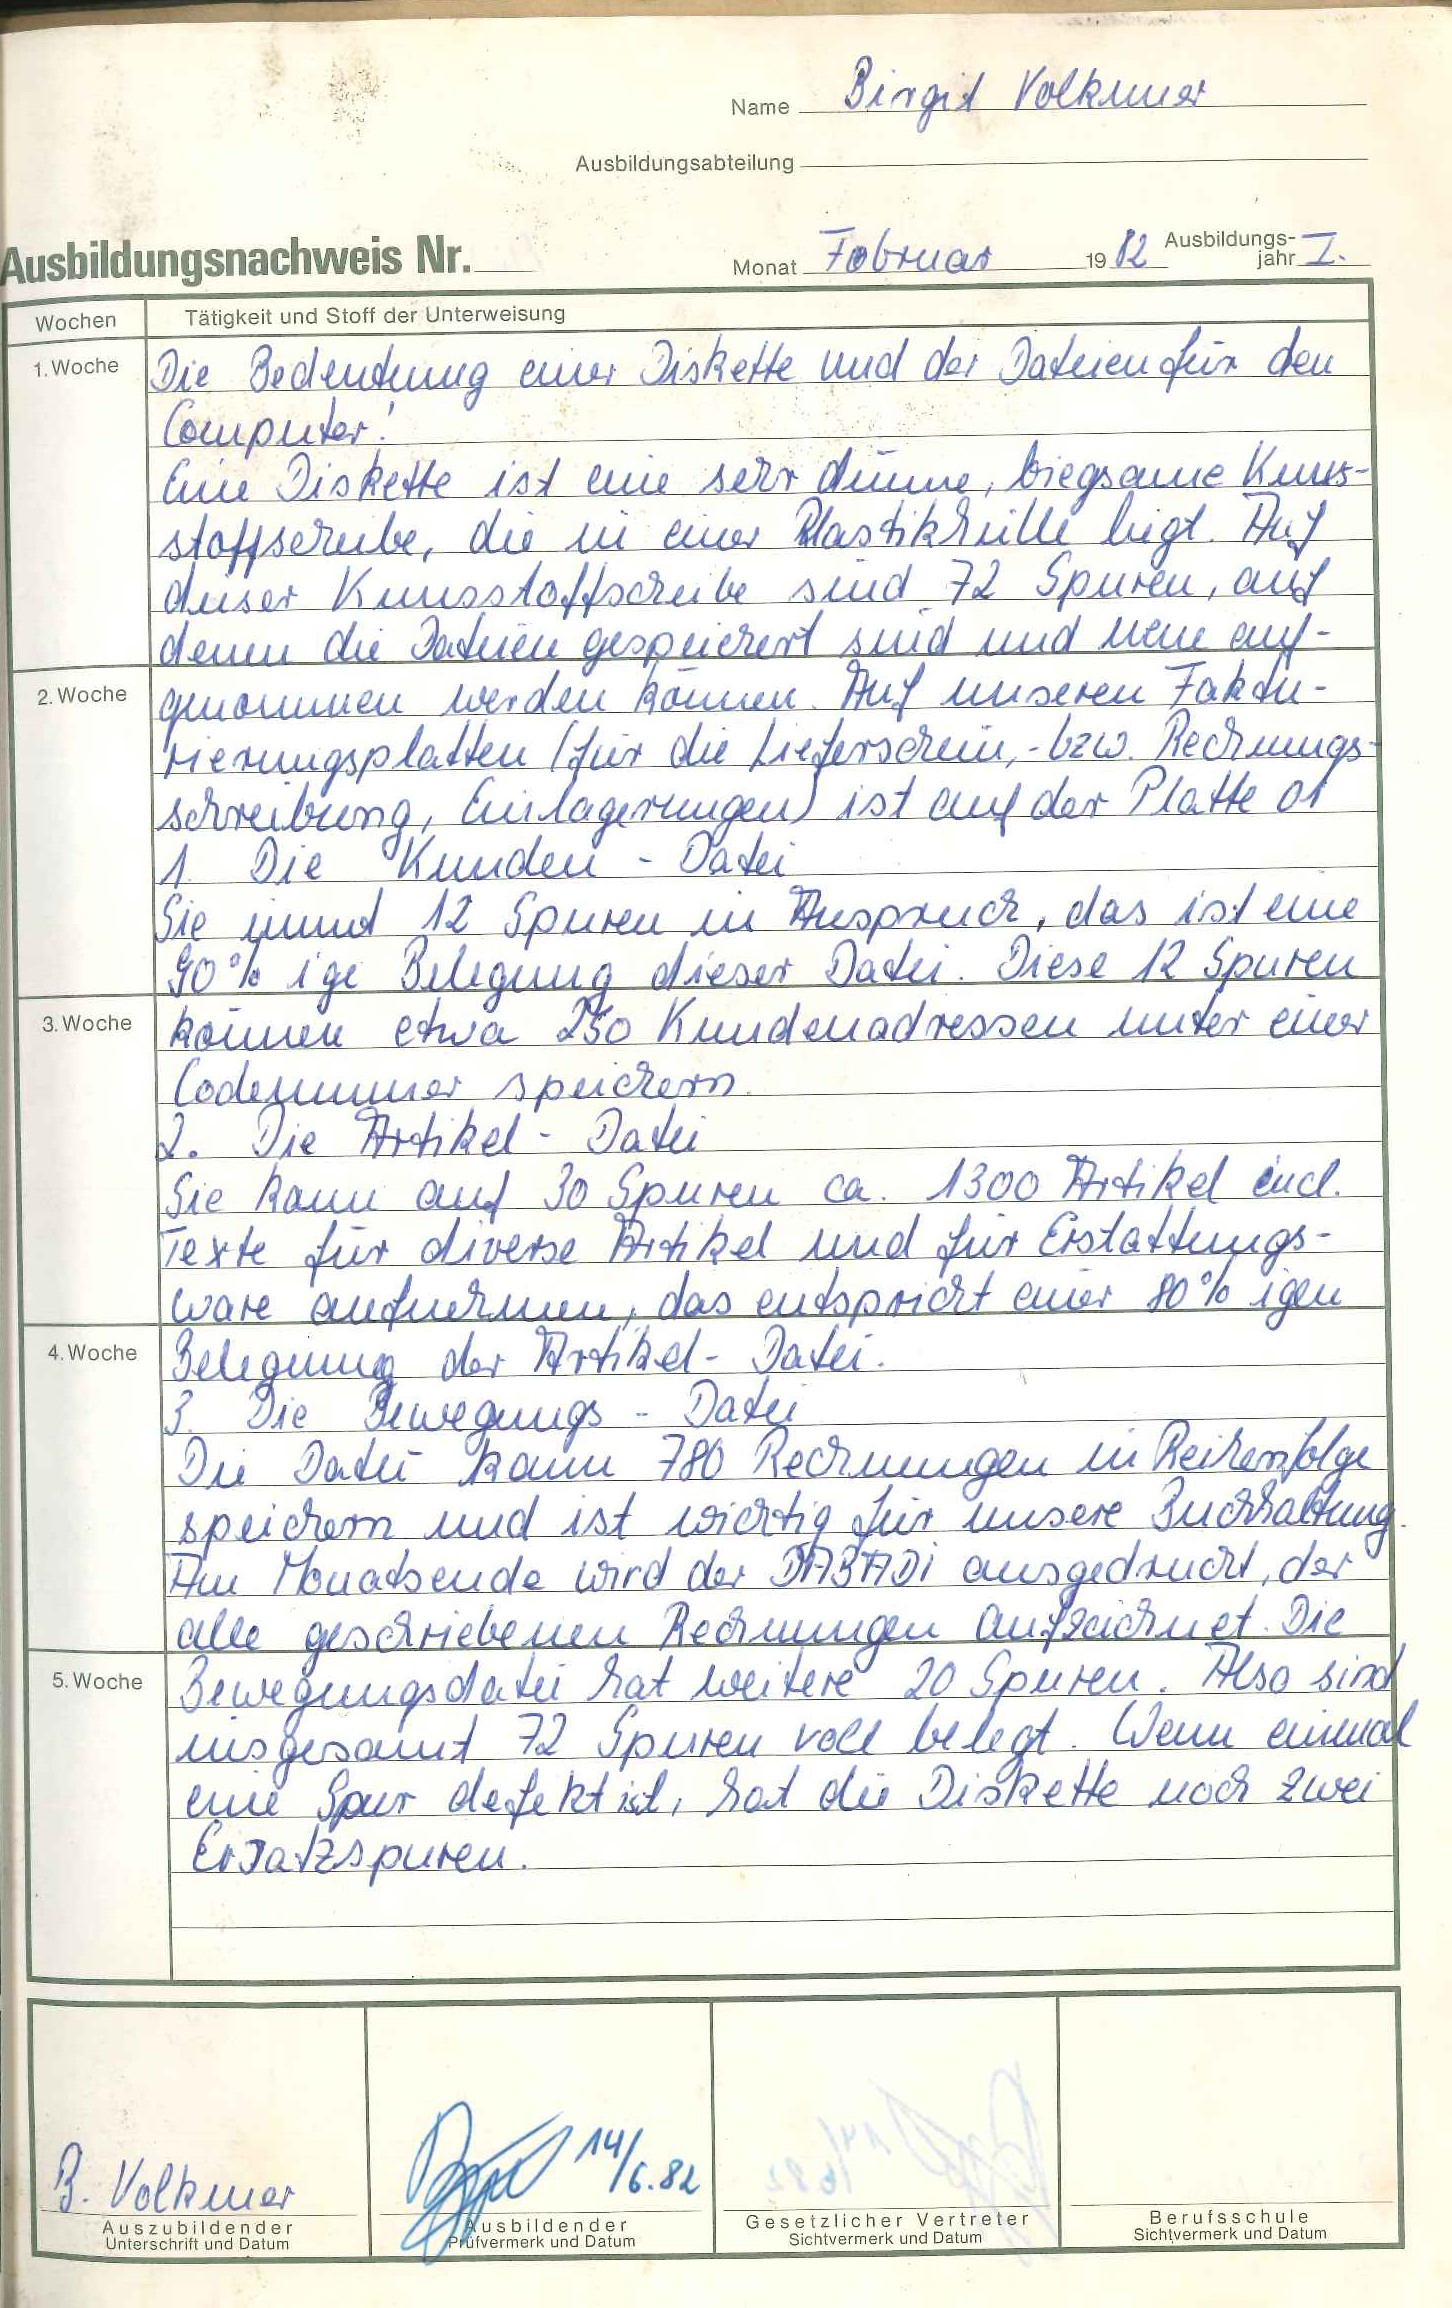 Name Birgit Volkmer
Ausbildungsabteilung
Ausbildungsnachweis Nr.
Monat Februar 1982 Ausbildungs-
jahr I.
Wochen Tätigkeit und Stoff der Unterweisung
1. Woche Die Bedeutung einer Diskette und der Dateien für den
Computer!
Eine Diskette ist eine sehr dünne, biegsame Kuns-
stoffscheibe, die in einer Plastikhülle liegt. Auf
dieser Kunsstoffscheibe sind 72 Spuren, auf
denen die Dateien gespeichert sind und neue auf-
2. Woche genommen werden können. Auf unseren Faktu-
rierungsplatten (für die Lieferschein,- bzw. Rechnungs-
schreibung, Einlagerungen) ist auf der Platte 01
1. Die Kunden - Datei
Sie nimmt 12 Spuren in Anspruch, das ist eine
90% ige Belegung dieser Datei. Diese 12 Spuren
3. Woche können etwa 250 Kundenadressen unter einer
Codenummer speichern.
2. Die Artikel - Datei
Sie kann auf 30 Spuren ca. 1300 Artikel incl.
Texte für diverse Artikel und für Erstattungs-
ware aufnehmen, das entspricht einer 80% igen
4. Woche Belegung der Artikel- Datei.
3. Die Bewegungs - Datei
Die Datei kann 780 Rechnungen in Reihenfolge
speichern und ist wichtig für unsere Buchhaltung.
Am Monatsende wird der DABADI ausgedruckt, der
alle geschriebenen Rechnungen aufzeichnet. Die
5. Woche Bewegungsdatei hat weitere 20 Spuren. Also sind
insgesamt 72 Spuren voll belegt. Wenn einmal
eine Spur defekt ist, hat die Diskette noch zwei
Ersatzspuren.
B. Volkmer
14/6.82
Auszubildender
Unterschrift und Datum
Ausbildender
Prüfvermerk und Datum
Gesetzlicher Vertreter
Sichtvermerk und Datum
Berufsschule
Sichtvermerk und Datum